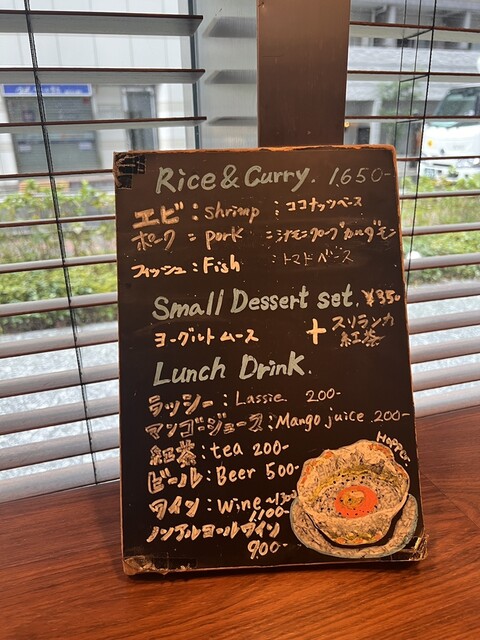 Rice & Curry. 1.650-
エビ : shrimp : ココナッツベース
ポーク : pork : シナモンクローブカルダモン
フィッシュ : Fish : トマトベース
Small Dessert set. ¥350
ヨーグルトムース + スリランカ
紅茶
Lunch Drink.
ラッシー : Lassie 200-
マンゴージュース : Mango juice 200-
紅茶 : tea 200-
ビール : Beer 500-
ワイン : wine
1100-
ノンアルコールワイン
900-
Hopper